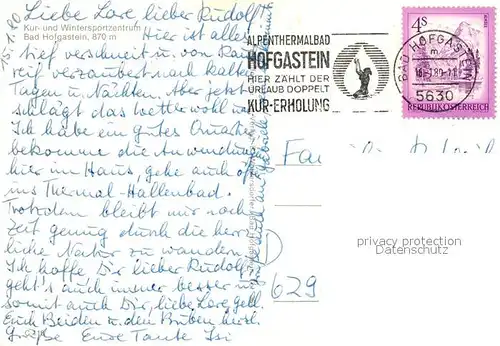 15.1.80
Liebe Lore, lieber Rudolf!
Kur- und Wintersportzentrum
Bad Hofgastein, 870 m
Hier ist alles
tief verschneit u. von Rau
reif verzaubert nach kalten
Tagen u. Nächten. Aber jetzt
schlägt das Wetter wohl um.
Ich habe ein gutes Quartier
bekomme die Anwendungen
hier im Haus, gehe auch oft
ins Thermal-Hallenbad.
Trotzdem bleibt mir noch
Zeit genug durch die herr
liche Natur zu wandern.
Ich hoffe Dir, lieber Rudolf,
geht's auch immer besser u.
somit auch Dir, liebe Lore, gell.
Euch Beiden u. den Buben herzl.
Grüße Eure Tante Isi
ALPENTHERMALBAD
HOFGASTEIN
HIER ZÄHLT DER
URLAUB DOPPELT
KUR-ERHOLUNG
BAD HOFGASTEIN
5630
4S
REPUBLIK ÖSTERREICH
Fam
D
629
privacy protection
Datenschutz